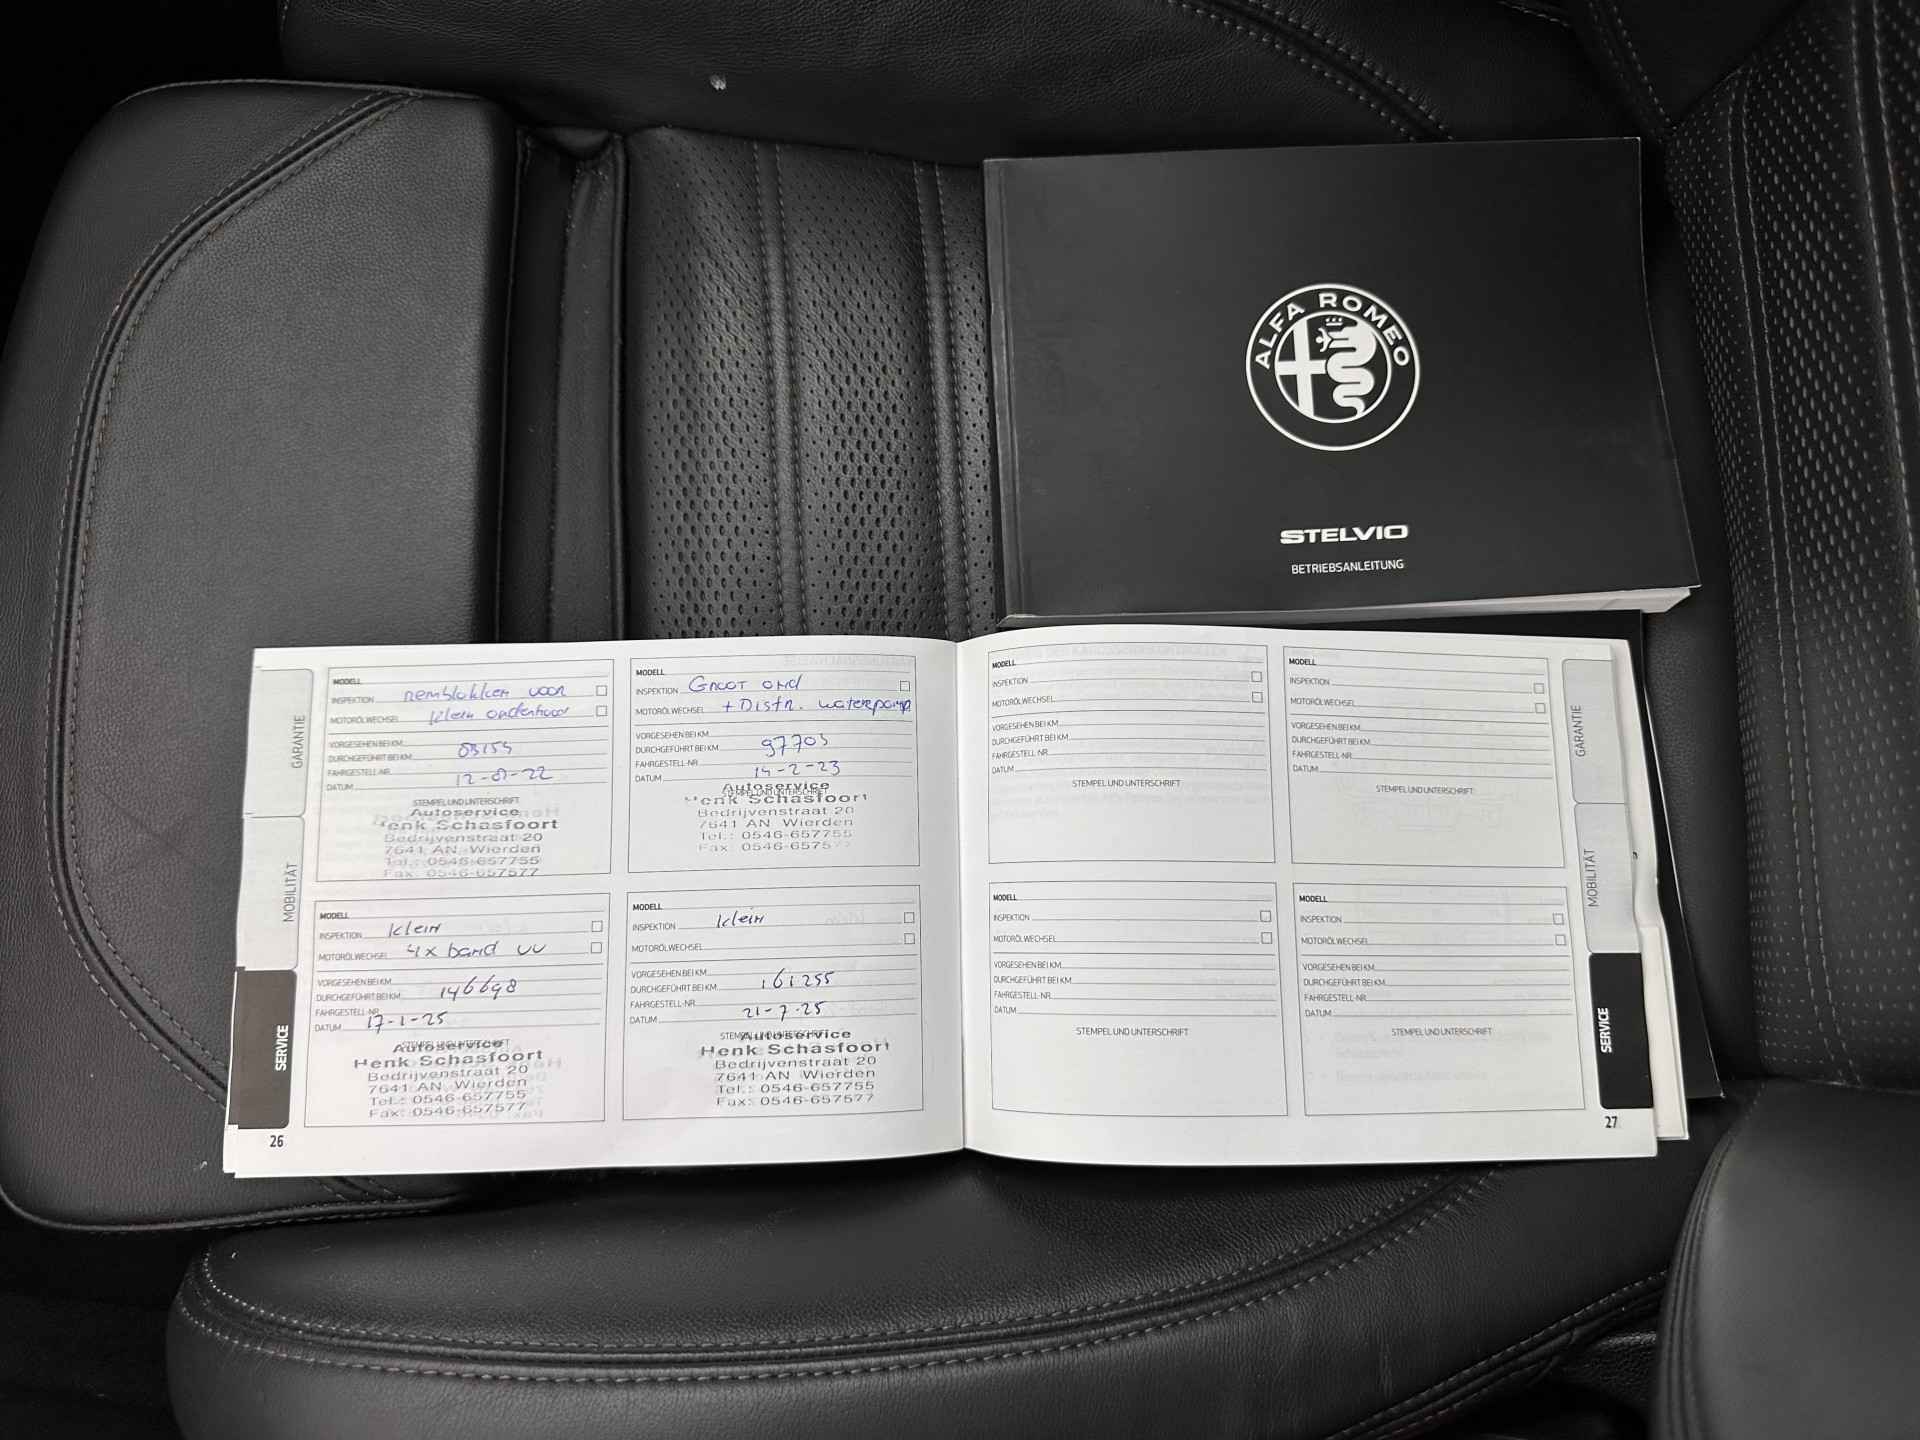 ALFA ROMEO
STELVIO
BETRIEBSANLEITUNG
GARANTIE
MOBILITÄT
SERVICE
MODELL
INSPEKTION remblokken voor
MOTORÖLWECHSEL Klein onderhoud
VORGESEHEN BEI KM
DURCHGEFÜHRT BEI KM
FAHRGESTELL-NR.
DATUM
STEMPEL UND UNTERSCHRIFT
Autoservice
Henk Schasfoort
Bedrijvenstraat 20
7641 AN Wierden
Tel.: 0546-657755
Fax: 0546-657577
MODELL
INSPEKTION Groot ond
MOTORÖLWECHSEL + Distr. waterpomp
VORGESEHEN BEI KM
DURCHGEFÜHRT BEI KM 97705
FAHRGESTELL-NR.
DATUM 14-2-23
STEMPEL UND UNTERSCHRIFT
Autoservice
Henk Schasfoort
Bedrijvenstraat 20
7641 AN Wierden
Tel.: 0546-657755
Fax: 0546-657577
MODELL
INSPEKTION Klein
MOTORÖLWECHSEL 4x band VV
VORGESEHEN BEI KM
DURCHGEFÜHRT BEI KM 146698
FAHRGESTELL-NR.
DATUM 17-1-25
STEMPEL UND UNTERSCHRIFT
Autoservice
Henk Schasfoort
Bedrijvenstraat 20
7641 AN Wierden
Tel.: 0546-657755
Fax: 0546-657577
MODELL
INSPEKTION Klein
MOTORÖLWECHSEL
VORGESEHEN BEI KM
DURCHGEFÜHRT BEI KM 161255
FAHRGESTELL-NR.
DATUM 21-7-25
STEMPEL UND UNTERSCHRIFT
Autoservice
Henk Schasfoort
Bedrijvenstraat 20
7641 AN Wierden
Tel.: 0546-657755
Fax: 0546-657577
26
MODELL
INSPEKTION
MOTORÖLWECHSEL
VORGESEHEN BEI KM
DURCHGEFÜHRT BEI KM
FAHRGESTELL-NR.
DATUM
STEMPEL UND UNTERSCHRIFT
MODELL
INSPEKTION
MOTORÖLWECHSEL
VORGESEHEN BEI KM
DURCHGEFÜHRT BEI KM
FAHRGESTELL-NR.
DATUM
STEMPEL UND UNTERSCHRIFT
MODELL
INSPEKTION
MOTORÖLWECHSEL
VORGESEHEN BEI KM
DURCHGEFÜHRT BEI KM
FAHRGESTELL-NR.
DATUM
STEMPEL UND UNTERSCHRIFT
MODELL
INSPEKTION
MOTORÖLWECHSEL
VORGESEHEN BEI KM
DURCHGEFÜHRT BEI KM
FAHRGESTELL-NR.
DATUM
STEMPEL UND UNTERSCHRIFT
GARANTIE
MOBILITÄT
SERVICE
27